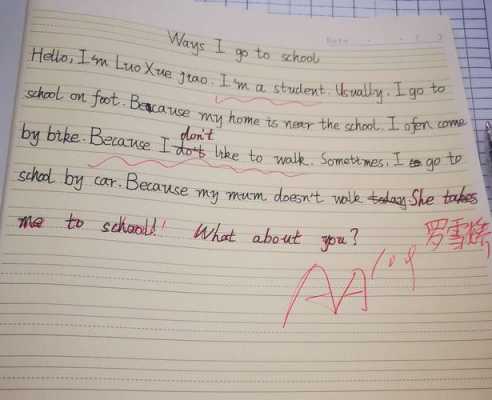 Ways I go to school
Hello, I'm Luo Xue jiao. I'm a student. Usually, I go to
school on foot. Because my home is near the school. I ofen come
don't
by bike. Because I do't like to walk. Sometimes, I to go to
school by car. Because my mum doesn't walk today. She takes
me to school! What about you?
罗雪娇
AA